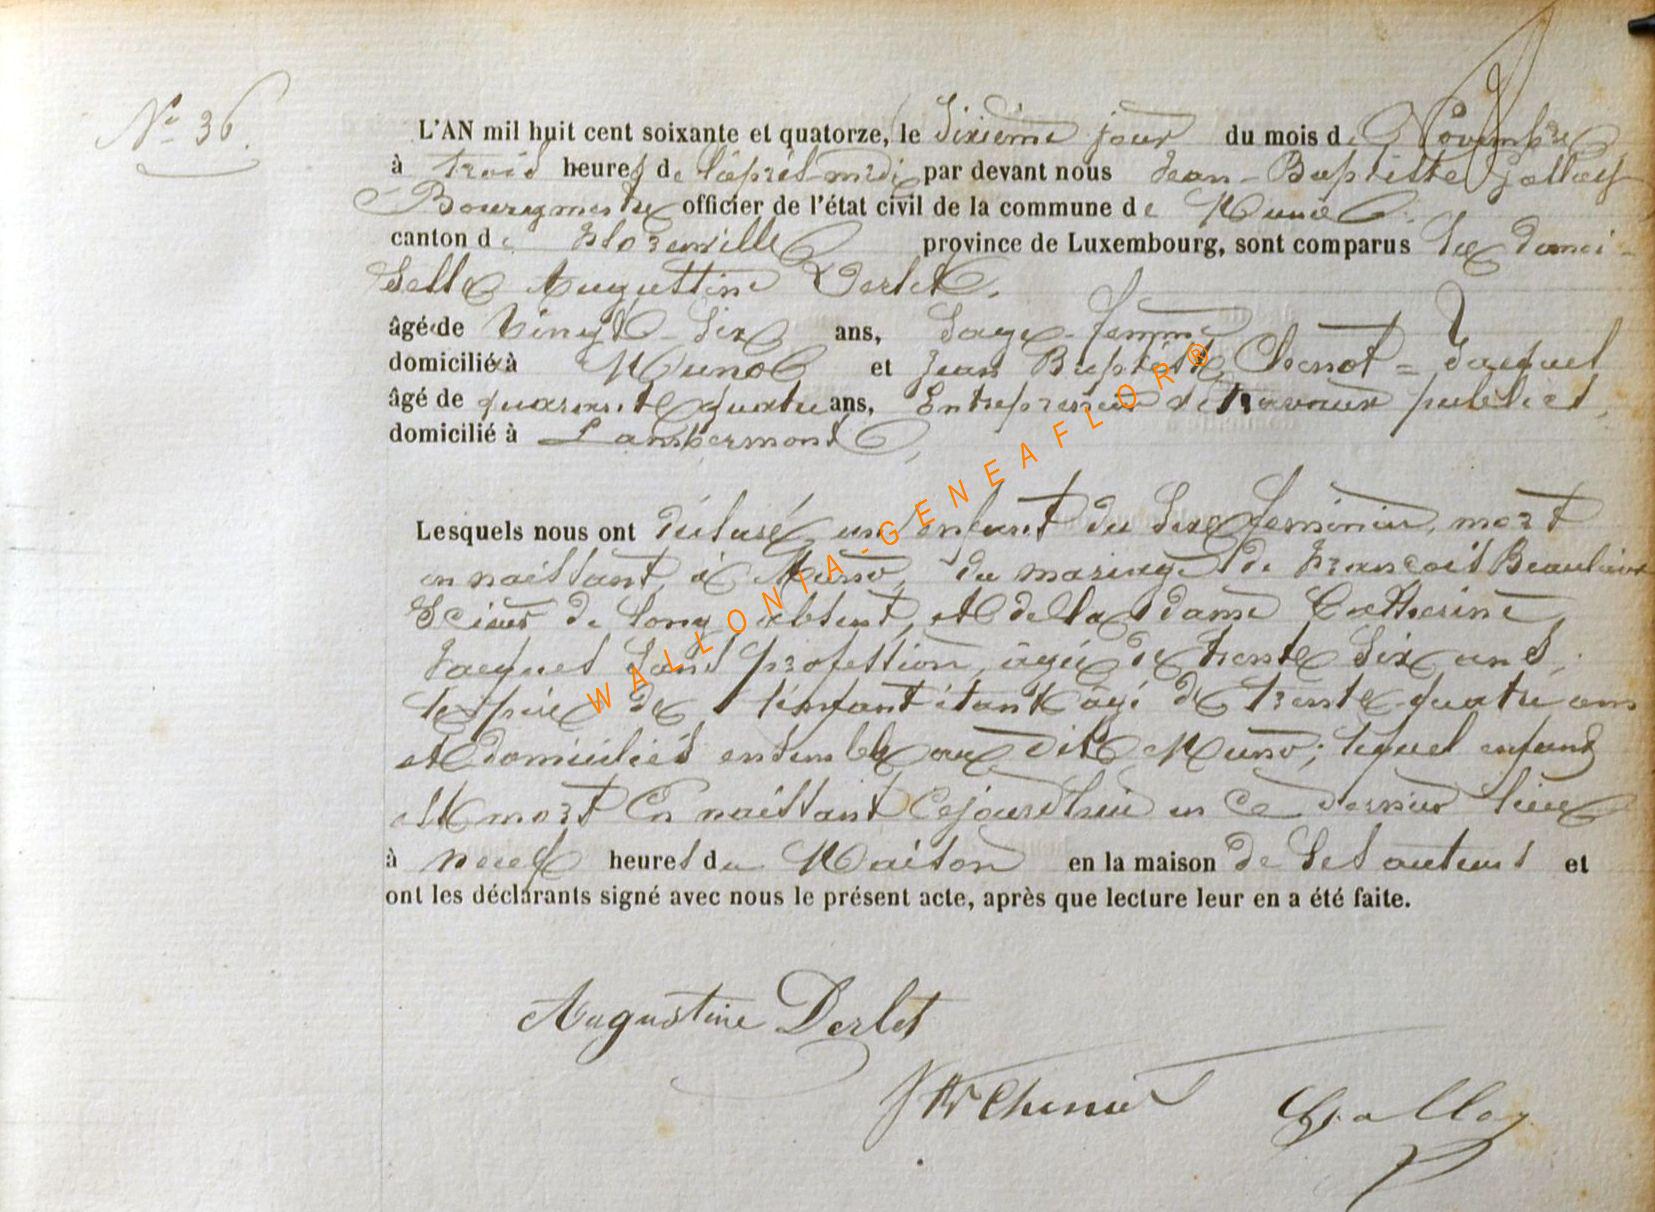 N° 36.
L'AN mil huit cent soixante et quatorze, le sixième jour du mois de Novembre
à trois heures de l'après-midi par devant nous Jean-Baptiste
Bourgmestre officier de l'état civil de la commune de Muno
canton de Florenville province de Luxembourg, sont comparus la demoi-
selle Augustine Derlet.
âgée de vingt-six ans, sage-femme
domiciliée à Muno et Jean Baptiste Chenot = Jacques
âgé de quarante quatre ans, Entrepreneur de travaux publics,
domicilié à Lambermont,
Lesquels nous ont déclaré un enfant du sexe feminin, mort
en naissant, à Muno, du mariage de François Beaulieux
Scieur de long absent, et de la dame Catherine
Jacques sans profession, âgée de trente six ans,
le père de l'enfant étant âgé de trente-quatre ans
et domiciliés ensemble au dit Muno; lequel enfant
est mort en naissant cejourd'hui en ce dernier lieu
à neuf heures du Maison en la maison de ses auteurs et
ont les déclarants signé avec nous le présent acte, après que lecture leur en a été faite.
Augustine Derlet
JB Chenot
WALLONIA-GENEAFLOR®